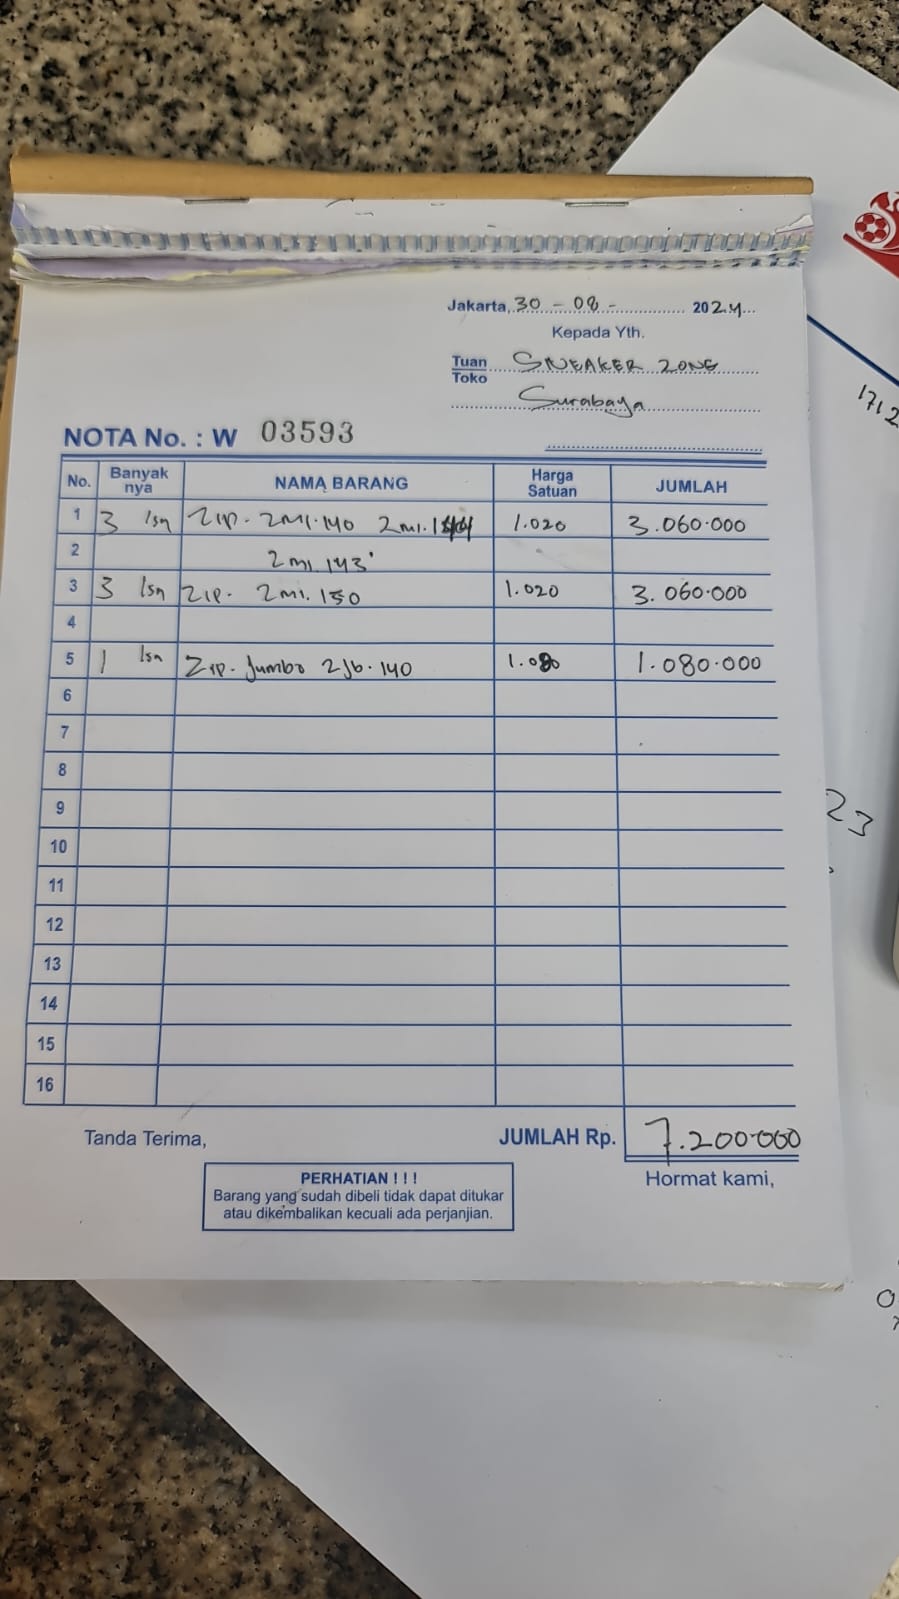 Jakarta, 30 - 08 - 2024
Kepada Yth.
Tuan SNEAKER ZONE
Toko
Surabaya
NOTA No. : W 03593
No. Banyak nya NAMA BARANG Harga Satuan JUMLAH
1 3 lsn Zip. 2M1.140 2M1. 1.020 3.060.000
2 2M1.143
3 3 lsn Zip. 2M1.150 1.020 3.060.000
4
5 1 lsn Zip. Jumbo 2Jb.140 1.080 1.080.000
6
7
8
9
10
11
12
13
14
15
16
Tanda Terima, JUMLAH Rp. 7.200.000
Hormat kami,
PERHATIAN ! ! !
Barang yang sudah dibeli tidak dapat ditukar
atau dikembalikan kecuali ada perjanjian.
1712
23